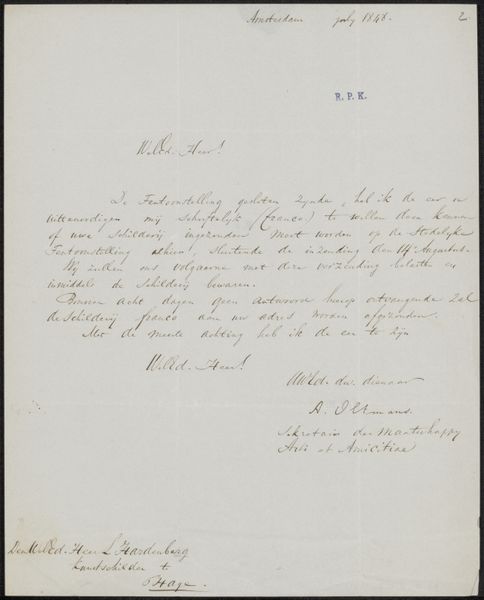 Amsterdam july 1848. 2
R. P. K.
WelEd. Heer!
De Tentoonstelling gesloten zynde, heb ik de eer u
uittenoodigen mij schriftelijk (franco) te willen doen kennen
of uwe schilderij ingezonden moet worden op de Stedelijke
Tentoonstelling alhier, sluitende de inzending den 14e Augustus.
Wij zullen ons volgaarne met deze verzending belasten en
inmiddels de schilderij bewaren.
Binnen acht dagen geen antwoord hierop ontvangende zal
de schilderij franco aan uw adres worden afgezonden.
Met de meeste achting heb ik de eer te zijn
WelEd. Heer!
UWEds. dw. dienaar
A. Oltmans.
Sekretaris der Maatschappy
Arti et Amicitiae
Den WelEd. Heer L Hardenberg
Kunstschilder te
's Hage.